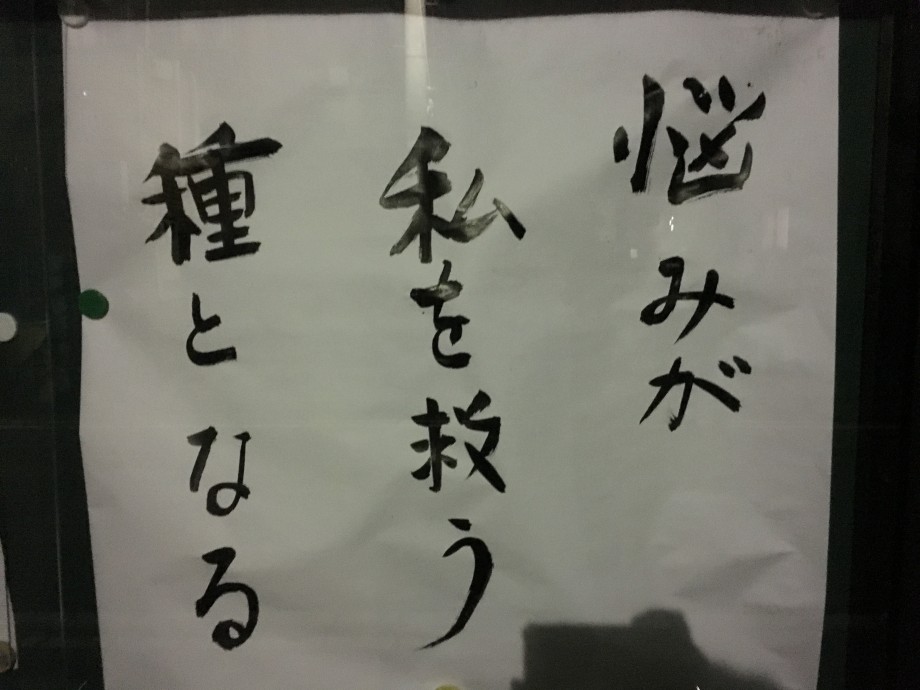 悩みが
私を救う
種となる